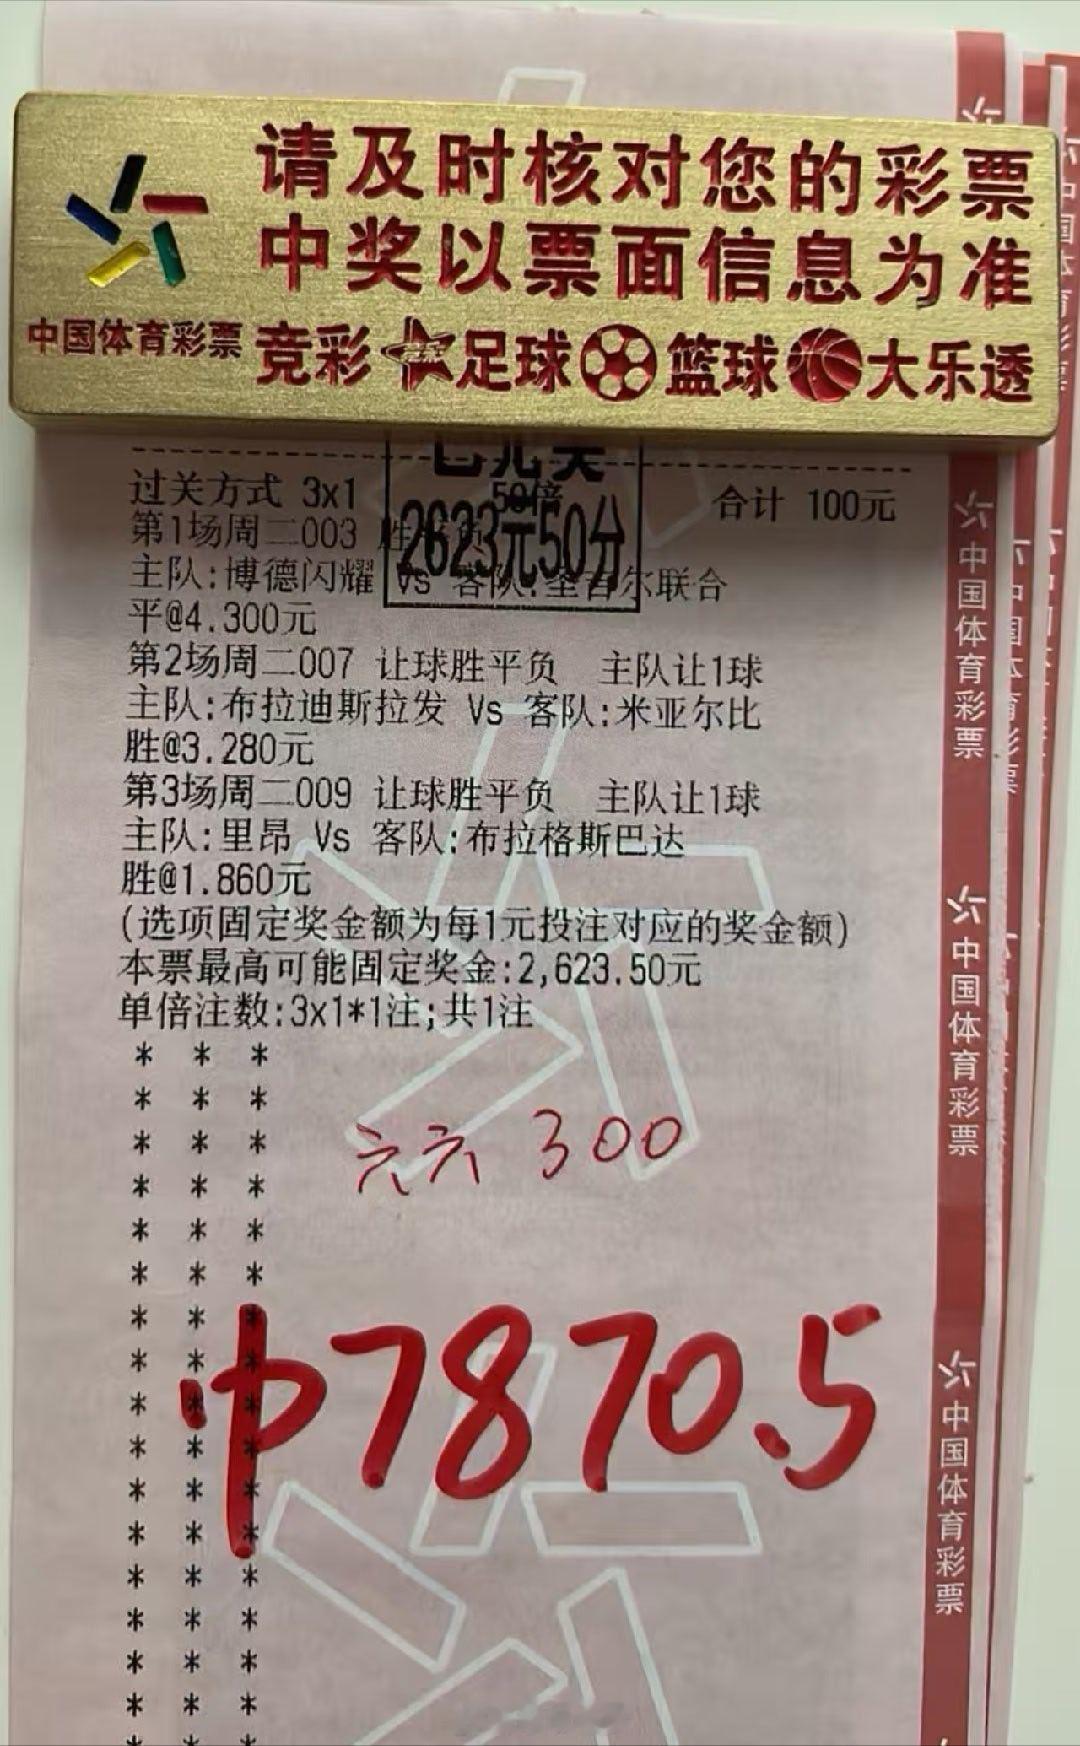 请及时核对您的彩票
中奖以票面信息为准
中国体育彩票 竞彩 足球 篮球 大乐透
已兑奖
2623元50分
过关方式 3x1 50倍 合计 100元
第1场周二003 胜平负
主队:博德闪耀 Vs 客队:圣吉尔联合
平@4.300元
第2场周二007 让球胜平负 主队让1球
主队:布拉迪斯拉发 Vs 客队:米亚尔比
胜@3.280元
第3场周二009 让球胜平负 主队让1球
主队:里昂 Vs 客队:布拉格斯巴达
胜@1.860元
(选项固定奖金额为每1元投注对应的奖金额)
本票最高可能固定奖金:2,623.50元
单倍注数:3x1*1注;共1注
六六 300
中7870.5
中国体育彩票
中国体育彩票
中国体育彩票